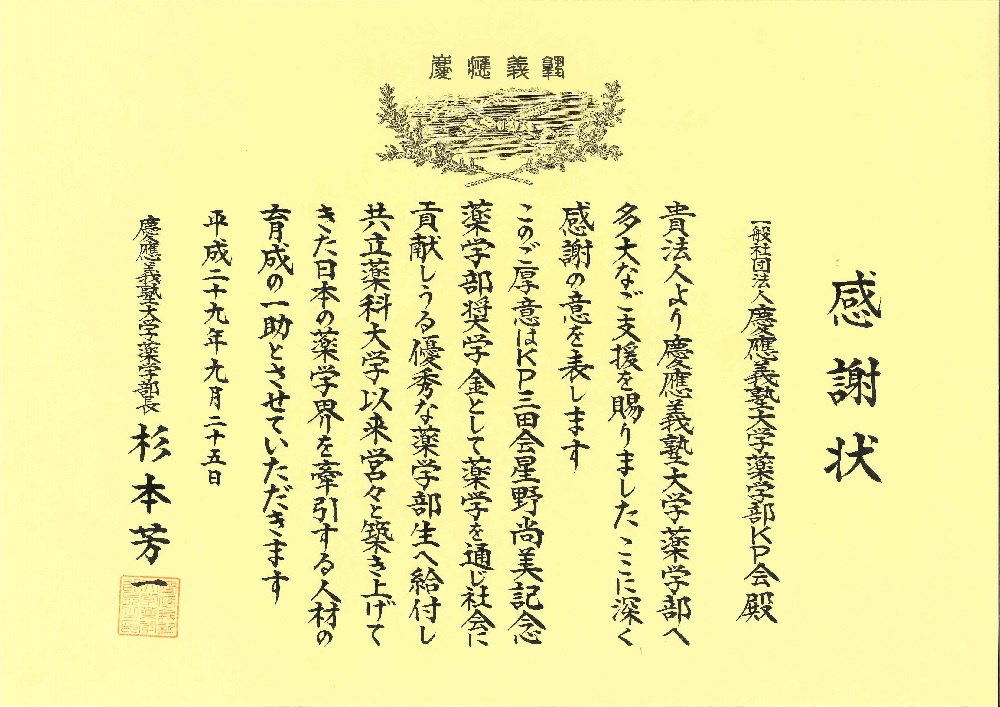 慶應義塾
感謝状
一般社団法人慶應義塾大学薬学部KP会殿
貴法人より慶應義塾大学薬学部へ
多大なご支援を賜りましたここに深く
感謝の意を表します
このご厚意はKP三田会星野尚美記念
薬学部奨学金として薬学を通じ社会に
貢献しうる優秀な薬学部生へ給付し
共立薬科大学以来営々と築き上げて
きた日本の薬学界を牽引する人材の
育成の一助とさせていただきます
平成二十九年九月二十五日
慶應義塾大学薬学部長 杉本芳一